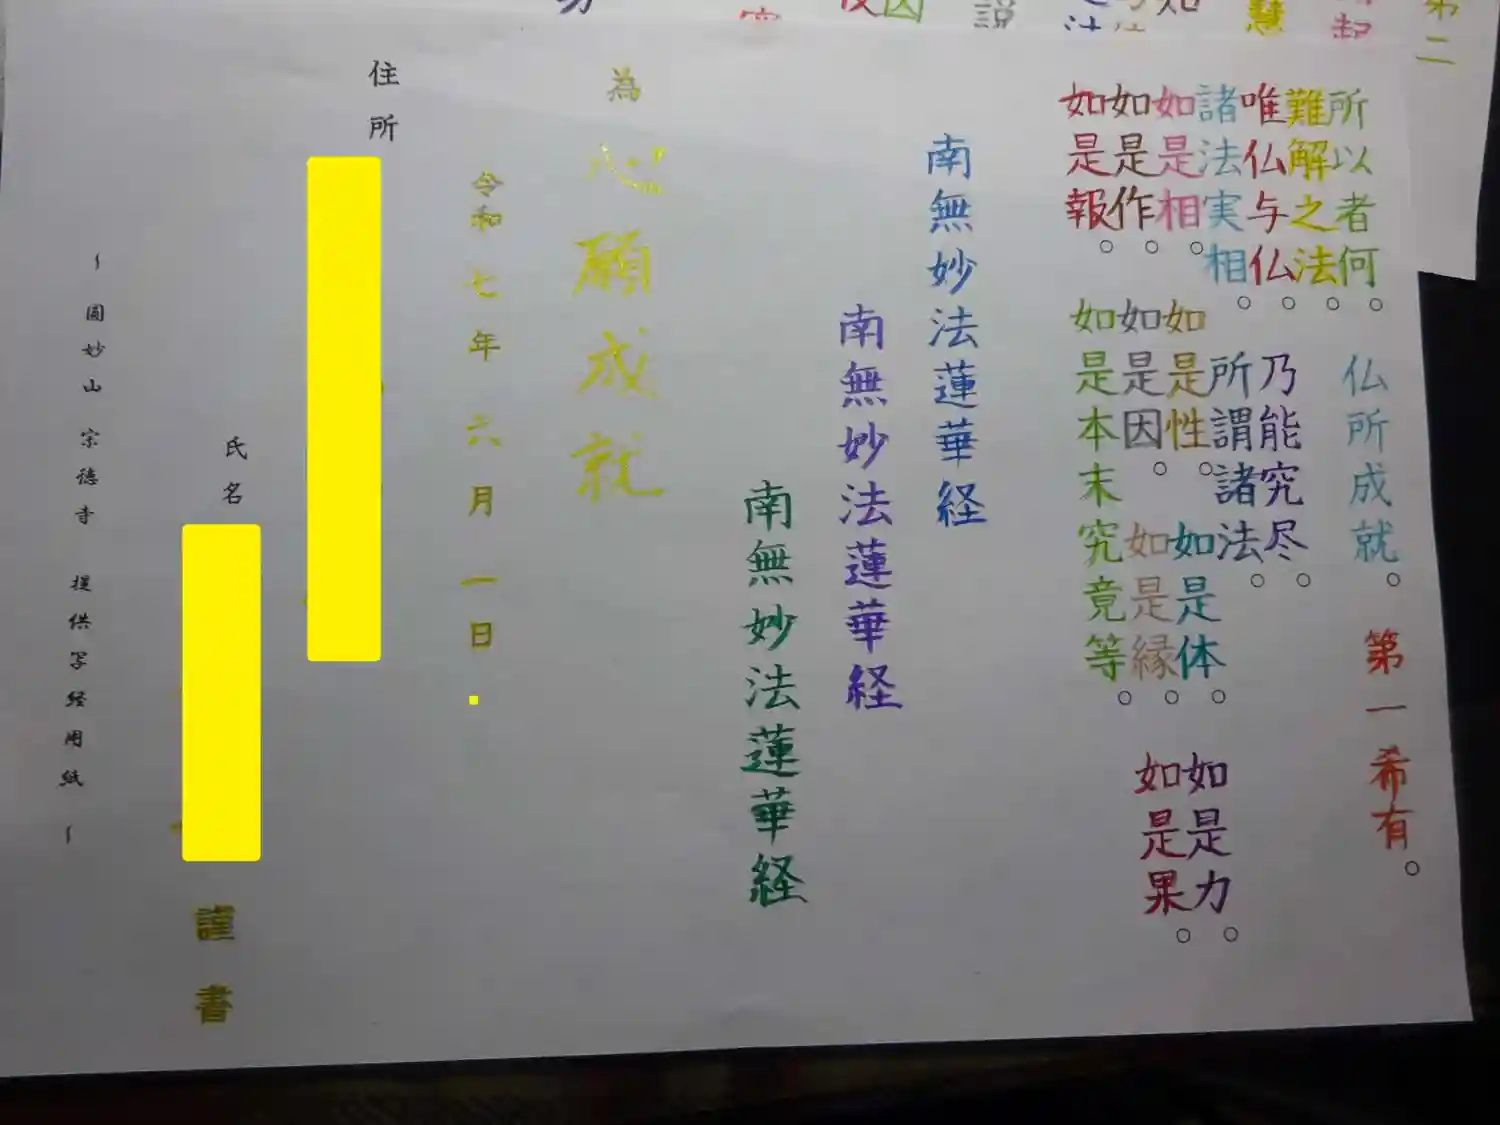 第二
慧
説
仏所成就。第一希有。
所以者何。
難解之法。
唯仏与仏。乃能究尽。
諸法実相。所謂諸法。
如是相。如是性。如是体。如是力。
如是作。如是因。如是縁。如是果。
如是報。如是本末究竟等。
南無妙法蓮華経
南無妙法蓮華経
南無妙法蓮華経
為心願成就
令和七年六月一日
住所
氏名
謹書
~圓妙山 宗徳寺 提供写経用紙~